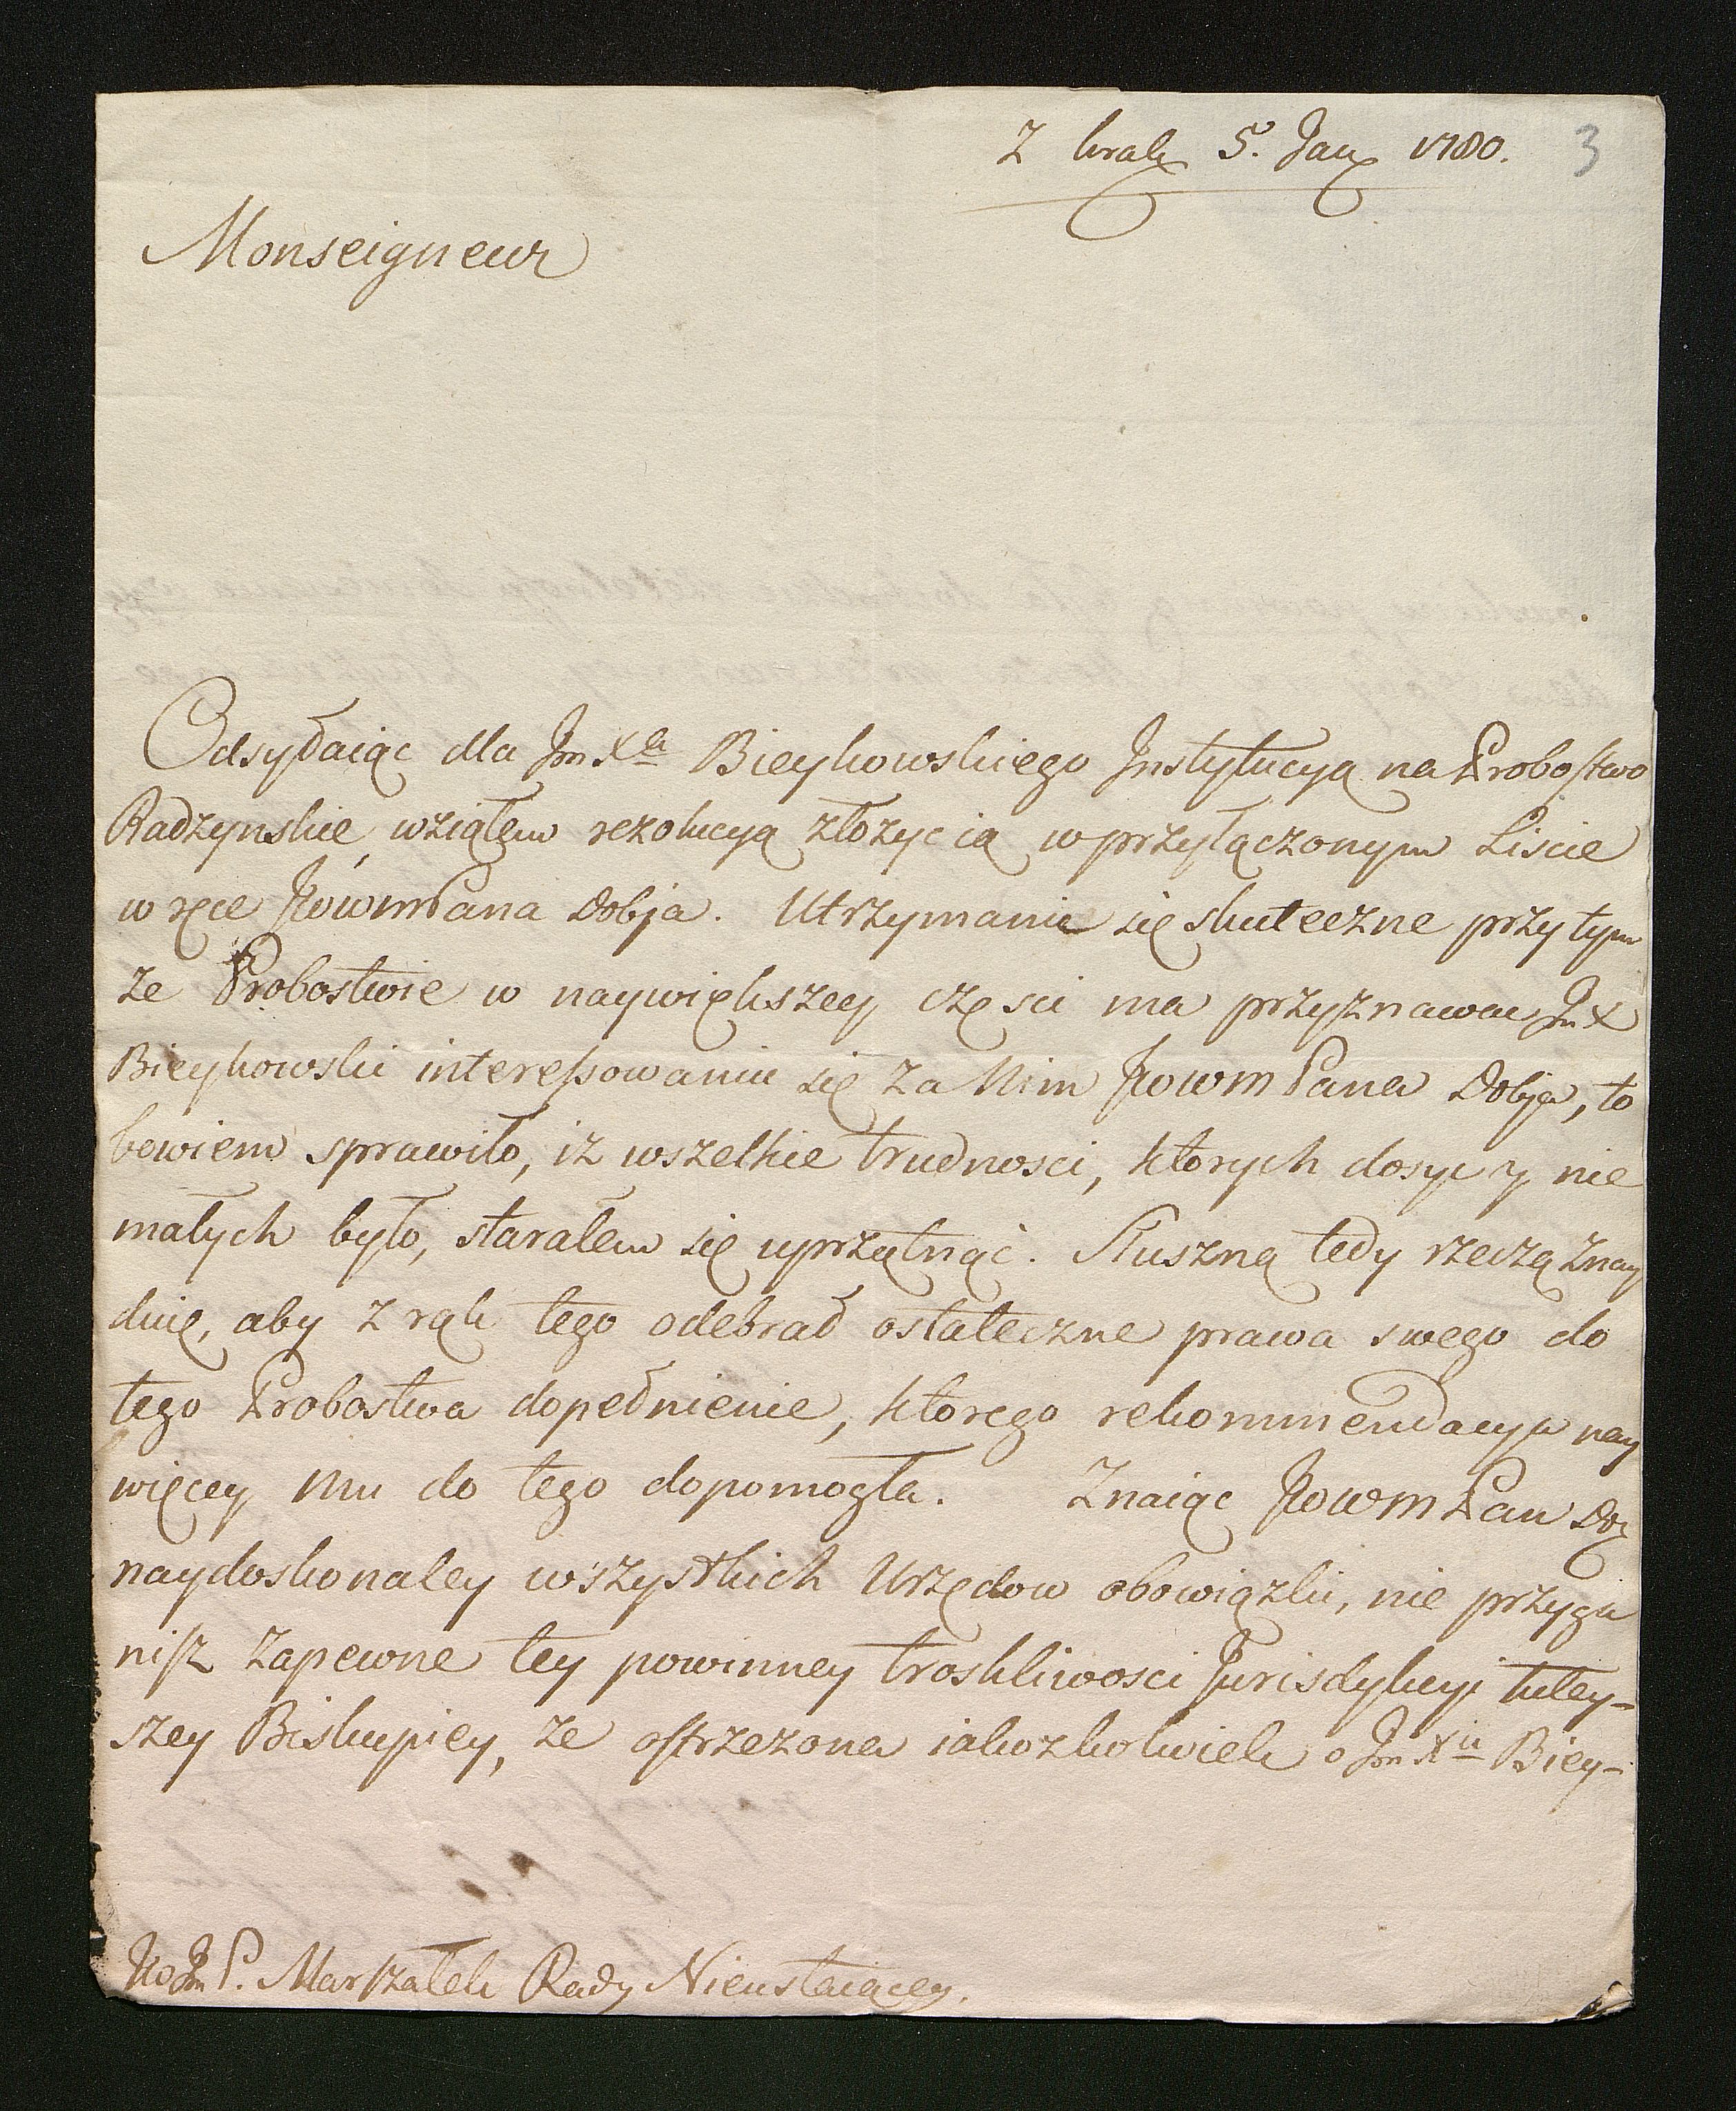 Z Krak 5. Jan 1780. 3
Monseigneur
Odsyłaiąc dla Jm Xa Bieykowskiego Jnstytucyą na Probostwo
Radzynskie, wziąłem rezolucyą złożyc ią w przyłączonym Liscie
w ręce JWWmPana Dobja. Utrzymanie się skuteczne przy tym
że Probostwie w naywiększey częsci ma przyznawac Jm X
Bieykowski interessowaniu się za Nim JWWmPana Dobja, to
bowiem sprawiło, iż wszelkie trudnosci, ktorych dosyc y nie
małych było, starałem się uprzątnąć. Słuszną tedy rzeczą znay
duię, aby z rąk tego odebrał ostateczne prawa swego do
tego Probostwa dopełnienie, ktorego rekommendacya nay
więcey mu do tego dopomogła. Znaiąc JWWmPan Dob
naydoskonaley wszystkich Urzędow obowiązki, nie przyga
nisz zapewne tey powinney troskliwosci Jurisdykcyi tutey-
szey Biskupiey, że ostrzeżona iakożkolwiek o Jm Xu Biey-
JWJm P. Marszałek Rady Nieustaiącey.